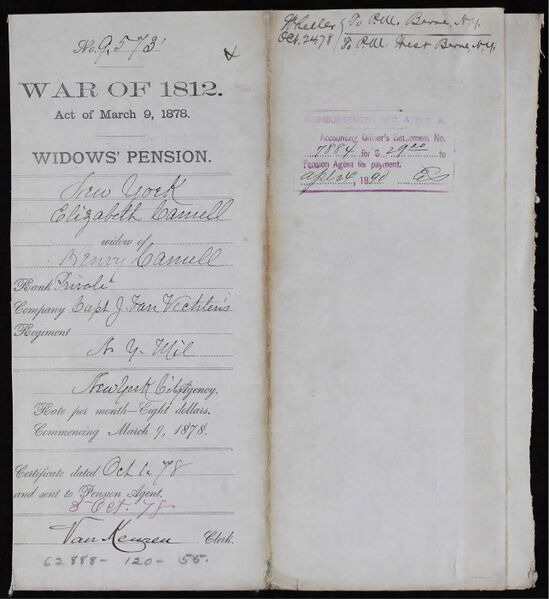 No. 9,573
WAR OF 1812.
Act of March 9, 1878.
WIDOWS' PENSION.
New York
Elizabeth Camell
widow of
Henry Camell
Rank Private
Company Capt J. Van Vechten's
Regiment
N. Y. Mil
New York City Agency.
Rate per month—Eight dollars.
Commencing March 9, 1878.
Certificate dated Oct 1. 78
and sent to Pension Agent.
2 Oct. 78
Van Keuren Clerk.
62888- 120- 55.
Wheeler
Oct. 24 78
To P.M. Berne, N.Y.
To P.M. West Berne, N.Y.
REIMBURSEMENT SEC. 4718 R. S.
Accounting Officer's Settlement No.
7884 for $ 29.00 to
Pension Agent for payment.
Apl 24, 1890